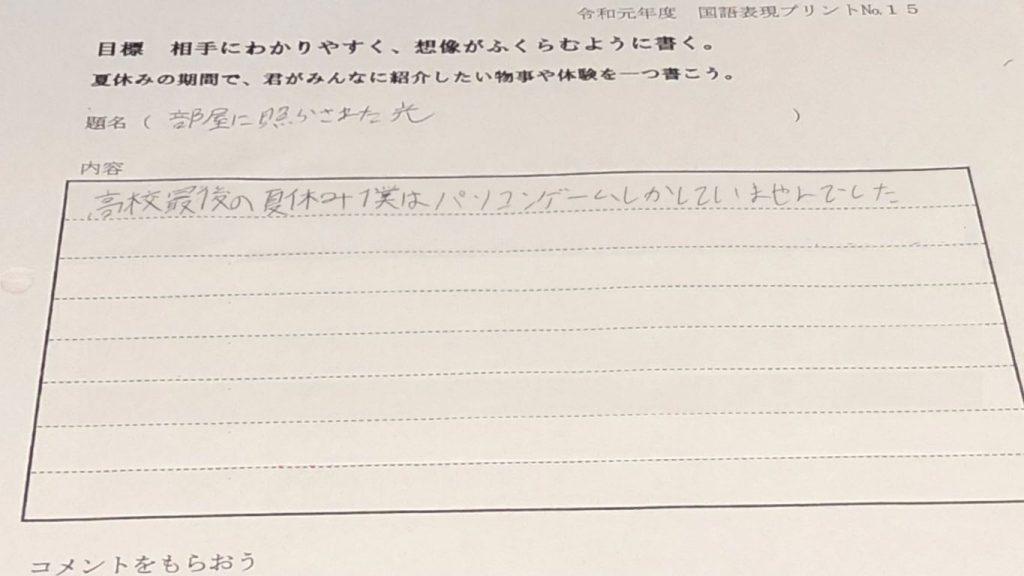 令和元年度　国語表現プリント№１５
目標　相手にわかりやすく、想像がふくらむように書く。
夏休みの期間で、君がみんなに紹介したい物事や体験を一つ書こう。
題名（　部屋に照らされた光　）
内容
高校最後の夏休み僕はパソコンゲームしかしていませんでした
コメントをもらおう